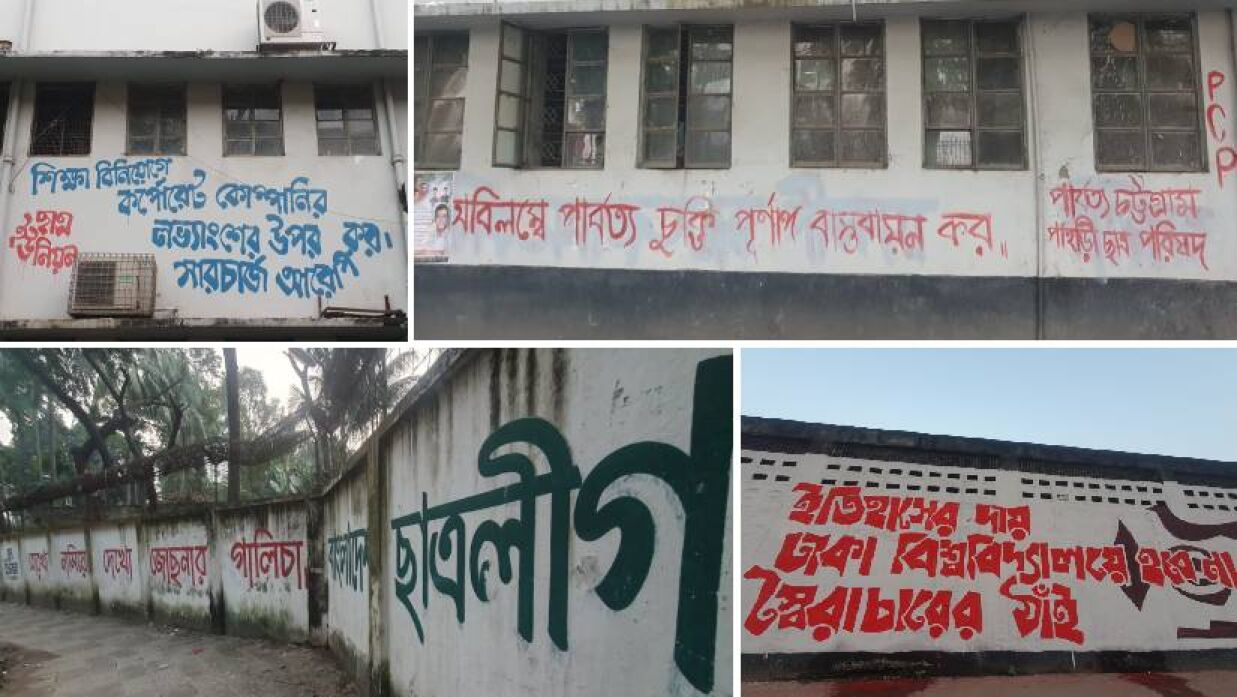 শিক্ষা বিনিয়োগে
কর্পোরেট কোম্পানির
লভ্যাংশের উপর
সারচার্জ আরোপ কর।
ছাত্র
ইউনিয়ন
অবিলম্বে পার্বত্য চুক্তি পূর্ণাঙ্গ বাস্তবায়ন কর॥
পার্বত্য চট্টগ্রাম
পাহাড়ী ছাত্র পরিষদ
PCP
দেখো জোছনার গালিচা
বাংলাদেশ ছাত্রলীগ
ইতিহাসের দায়
ঢাকা বিশ্ববিদ্যালয়ে হবে না
স্বৈরাচারের ঠাঁই